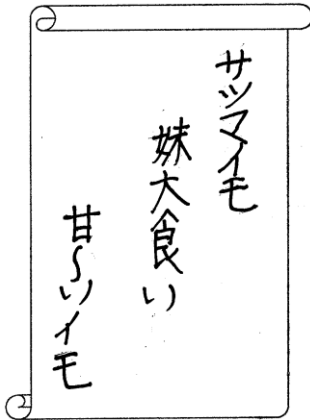 サツマイモ
妹大食い
甘〜いイモ